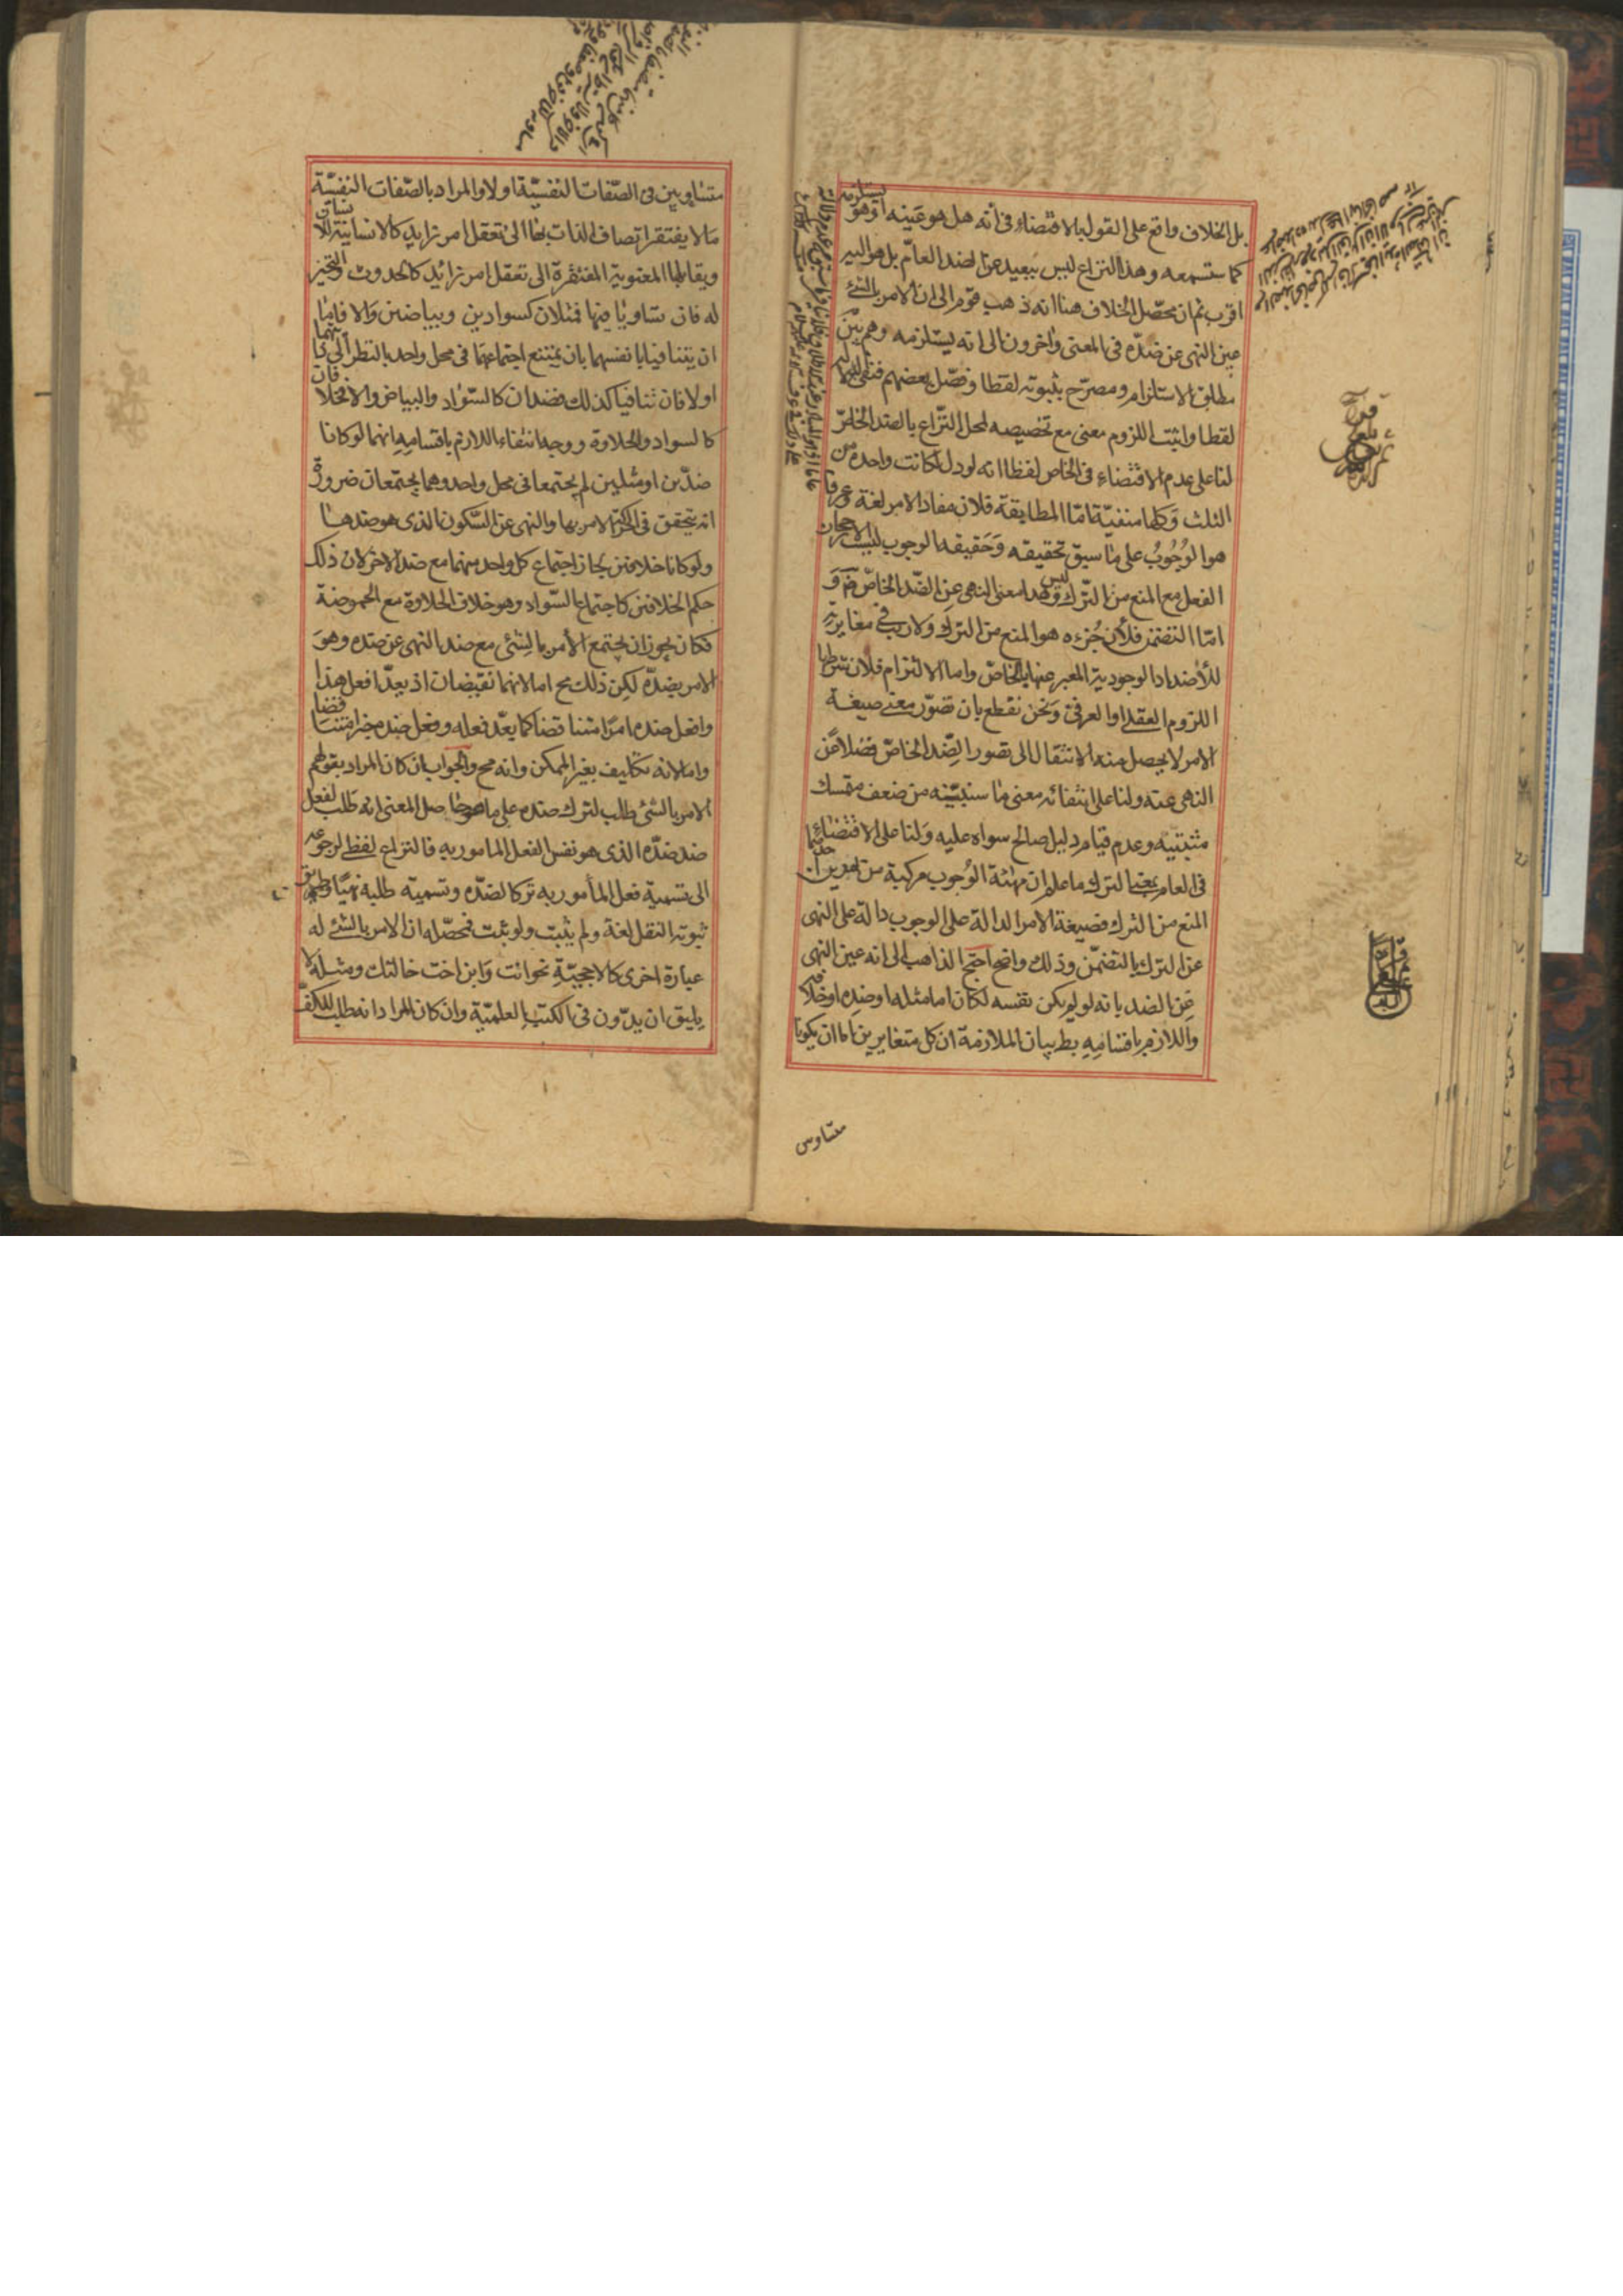 بل الخلاف واقع على القول بالاقتضاء في أنه هل هو عينه او هو يستلزمه
كما ستسمعه وهذا النزاع ليس ببعيد عن الضد العام بل هو اليه
اقرب ثم ان محصّل الخلاف هنا انه ذهب قوم الى ان الامر بالشئ
عين النهى عن ضدّه في المعنى واخرون الى انه يستلزمه وهم بين
مطلق للاستلزام ومصرّح بثبوته لفظا وفصّل بعضهم فنفى الدلالة
لفظا واثبت اللزوم معنى مع تخصيصه لمحل النّزاع بالضد الخاصّ
لنا على عدم الاقتضاء في الخاص لفظا انه لو دل لكانت واحدة من
الثلث وكلها منفيّة امّا المطابقة فلان مفاد الامر لغة وعرفا
هو الوُجُوبُ على ما سبق تحقيقه وَحَقيقه الوجوب ليست الا رجحان
الفعل مع المنع من الترك وليس هذا معنى النهى عن الضّد الخاصّ ضرورة
امّا التضمن فلأن جُزءه هو المنع من الترك وَلا ريب في مغايرته
للأضداد الوجودية المعبر عنها بالخاصّ واما الالتزام فلان شرطها
اللزوم العقلى او العرفى وَنحن نقطع بان تصّور معنى صيغة
الامر لا يحصل منه الانتقال الى تصور الضِّد الخاصّ فضلا عَن
النهى عنه ولنا على انتفائه معنى ما سنبيّنه من ضعف متمسك
مثبتيه وعدم قيام دليل صالح سواه عليه وَلنا على الاقتضاء
في العام بمعنى الترك ما علم من ان مهيّة الوُجوب مركبة من امرين احدهما
المنع من الترك فصيغة الامر الدالة على الوجوب دالة على النهى
عن الترك بالتضمّن وذلك واضح احتج الذاهب الى انه عين النهى
عَن الضد بانه لو لم يكن نفسه لكان اما مثله او ضده او خلافه
واللازم باقسَامِهِ بط بيان الملازمة ان كل متغايرين اما ان يكونا
متساوين
متسَاويين في الصّفات النفسيّة اولا والمراد بالصّفات النفسيّة
مَا لا يفتقر اتصاف الذات بها الى تعقل امر زايد كالانسانية للانسان
ويقابلها المعنوية المفتقرة الى تعقل امر زائد كالحدوث والتحيز
له فان تساويا فيها فمثلان كسوادين وبياضين وَالا فاما
ان يتنافيا بانفسهما بان يمتنع اجتماعهما في محل واحد بالنظر الى ذاتيهما
اولا فان تنافيا كذلك فضدان كالسّواد والبياض والا فخلافان
كالسواد والحلاوة ووجه انتفاء اللازم باقسَامِهِ انهما لو كانا
ضدّين او مثلين لم يجتمعا في محل واحد وهما يجتمعان ضرورة
انه يتحقق في الحركة الامر بها والنهى عن السّكون الذى هو ضدها
ولو كانا خلافين لجاز اجتماع كل واحد منهما مع ضد الاخر لان ذلك
حكم الخلافين كاجتماع السّواد وهو خلاف الحلاوة مع الحموضة
فكان يجوز ان يجتمع الأمر بالشئ مع ضد النهى عن ضده وهوَ
الامر بضدّه لكن ذلك مح اما لانهما نقيضان اذ يعدّ افعل هذا
وافعل ضده امرًا متناقضا كما يعدّ فعله وفعل ضده خبرا متناقضا
واما لانه تكليف بغير الممكن وانه مح والجواب ان كان المراد بقولهم
الامر بالشئ طلب لترك ضده على ما هو حاصل المعنى انه طلب لفعل
ضد ضدّه الذى هو نفس الفعل المامور به فالنزاع لفظى لرجوعه
الى تسمية فعل المأمور به تركا لضدّه وتسمية طلبه نهيًا وطريق
ثبوته النقل لغة ولم يثبت ولو ثبت فمحصّله ان الامر بالشئ له
عبارة اخرى كالاحجيّةِ نحو انت وَابن اخت خالتك ومثله لا
يليق ان يدّون في الكتب العلميّة وان كان المراد انه طلب للكفّ